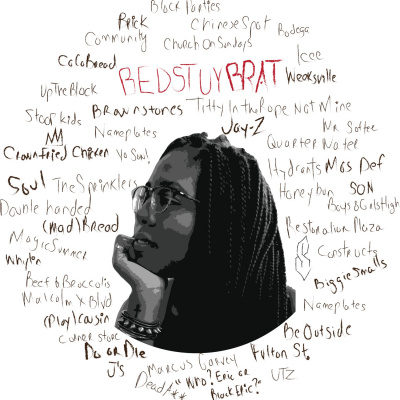 Block Parties
Brick
Chinese Spot
Bodega
Community
Church On Sundays
Icee
CoCo Bread
BEDSTUYBRAT
Weeksville
Up The Block
Brownstones
Titty In the Rope Not Mine
Stoop kids
Nameplates
Jay-Z
Mr Softee
Crown Fried Chicken
Yo Son!
Quarter Water
Hydrants
Mos Def
Soul
The Sprinklers
Honeybun
SON
Double handed
Boys & Girls High
(Mad) Bread
Restoration Plaza
Magic Summer
Constructs
Whylen
Biggie Smalls
Beef & Broccolis
Malcolm X Blvd
Nameplates
(Play) cousin
Be Outside
corner store
Do OR DIE
Fulton St.
J's
Marcus Garvey
UTZ
Dead A**
"Who? Eric or
Black Eric?"